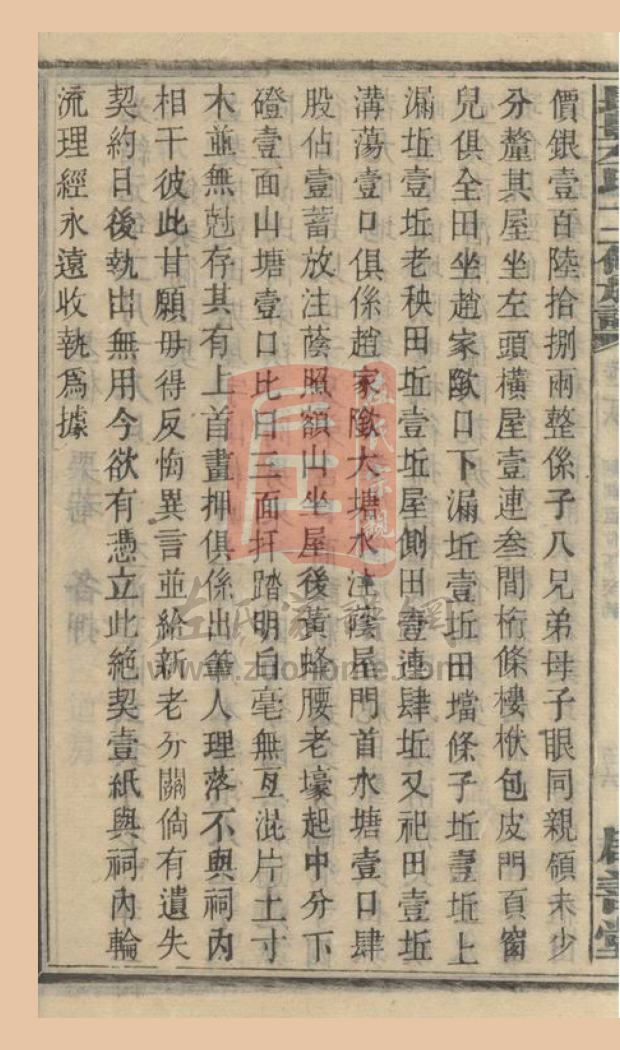 價銀壹百陸拾捌兩整係子八兄弟母子眼同親領未少
分釐其屋坐左頭橫屋壹連叁間桁條樓栿包皮門頁窗
兒俱全田坐趙家歐口下漏坵壹坵田壋條子坵壹坵上
漏坵壹坵老秧田坵壹坵屋側田壹連肆坵又祀田壹坵
溝蕩壹口俱係趙家歐大塘水注蔭屋門首水塘壹口肆
股佔壹蓄放注蔭照額山坐屋後黃蜂腰老壕起中分下
磴壹面山塘壹口比日三面扦踏明白毫無亙混片土寸
木並無尅存其有上首畫押俱係出筆人理落不與祠內
相干彼此甘願毋得反悔異言並給新老分關倘有遺失
契約日後執出無用今欲有憑立此絕契壹紙與祠內輪
流理經永遠收執爲據
左氏家譜網
www.zuohome.com